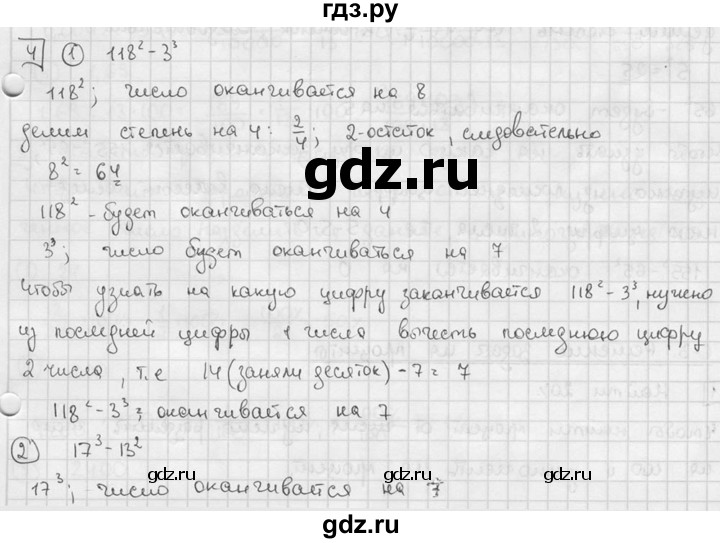 гдз.ру
4 1 118² - 3³
118²; число оканчивается на 8
делим степень на 4: 2/4; 2-остаток, следовательно
8² = 64
118² - будет оканчиваться на 4
3³; число будет оканчиваться на 7
чтобы узнать на какую цифру заканчивается 118² - 3³, нужно
из последней цифры 1 числа вычесть последнюю цифру
2 числа, т.е 14 (заняли десяток) - 7 = 7
118² - 3³; оканчивается на 7
2 17³ - 13²
17³; число оканчивается на 7
gdz.ru
gdz.ru
gdz.ru
gdz.ru
gdz.ru